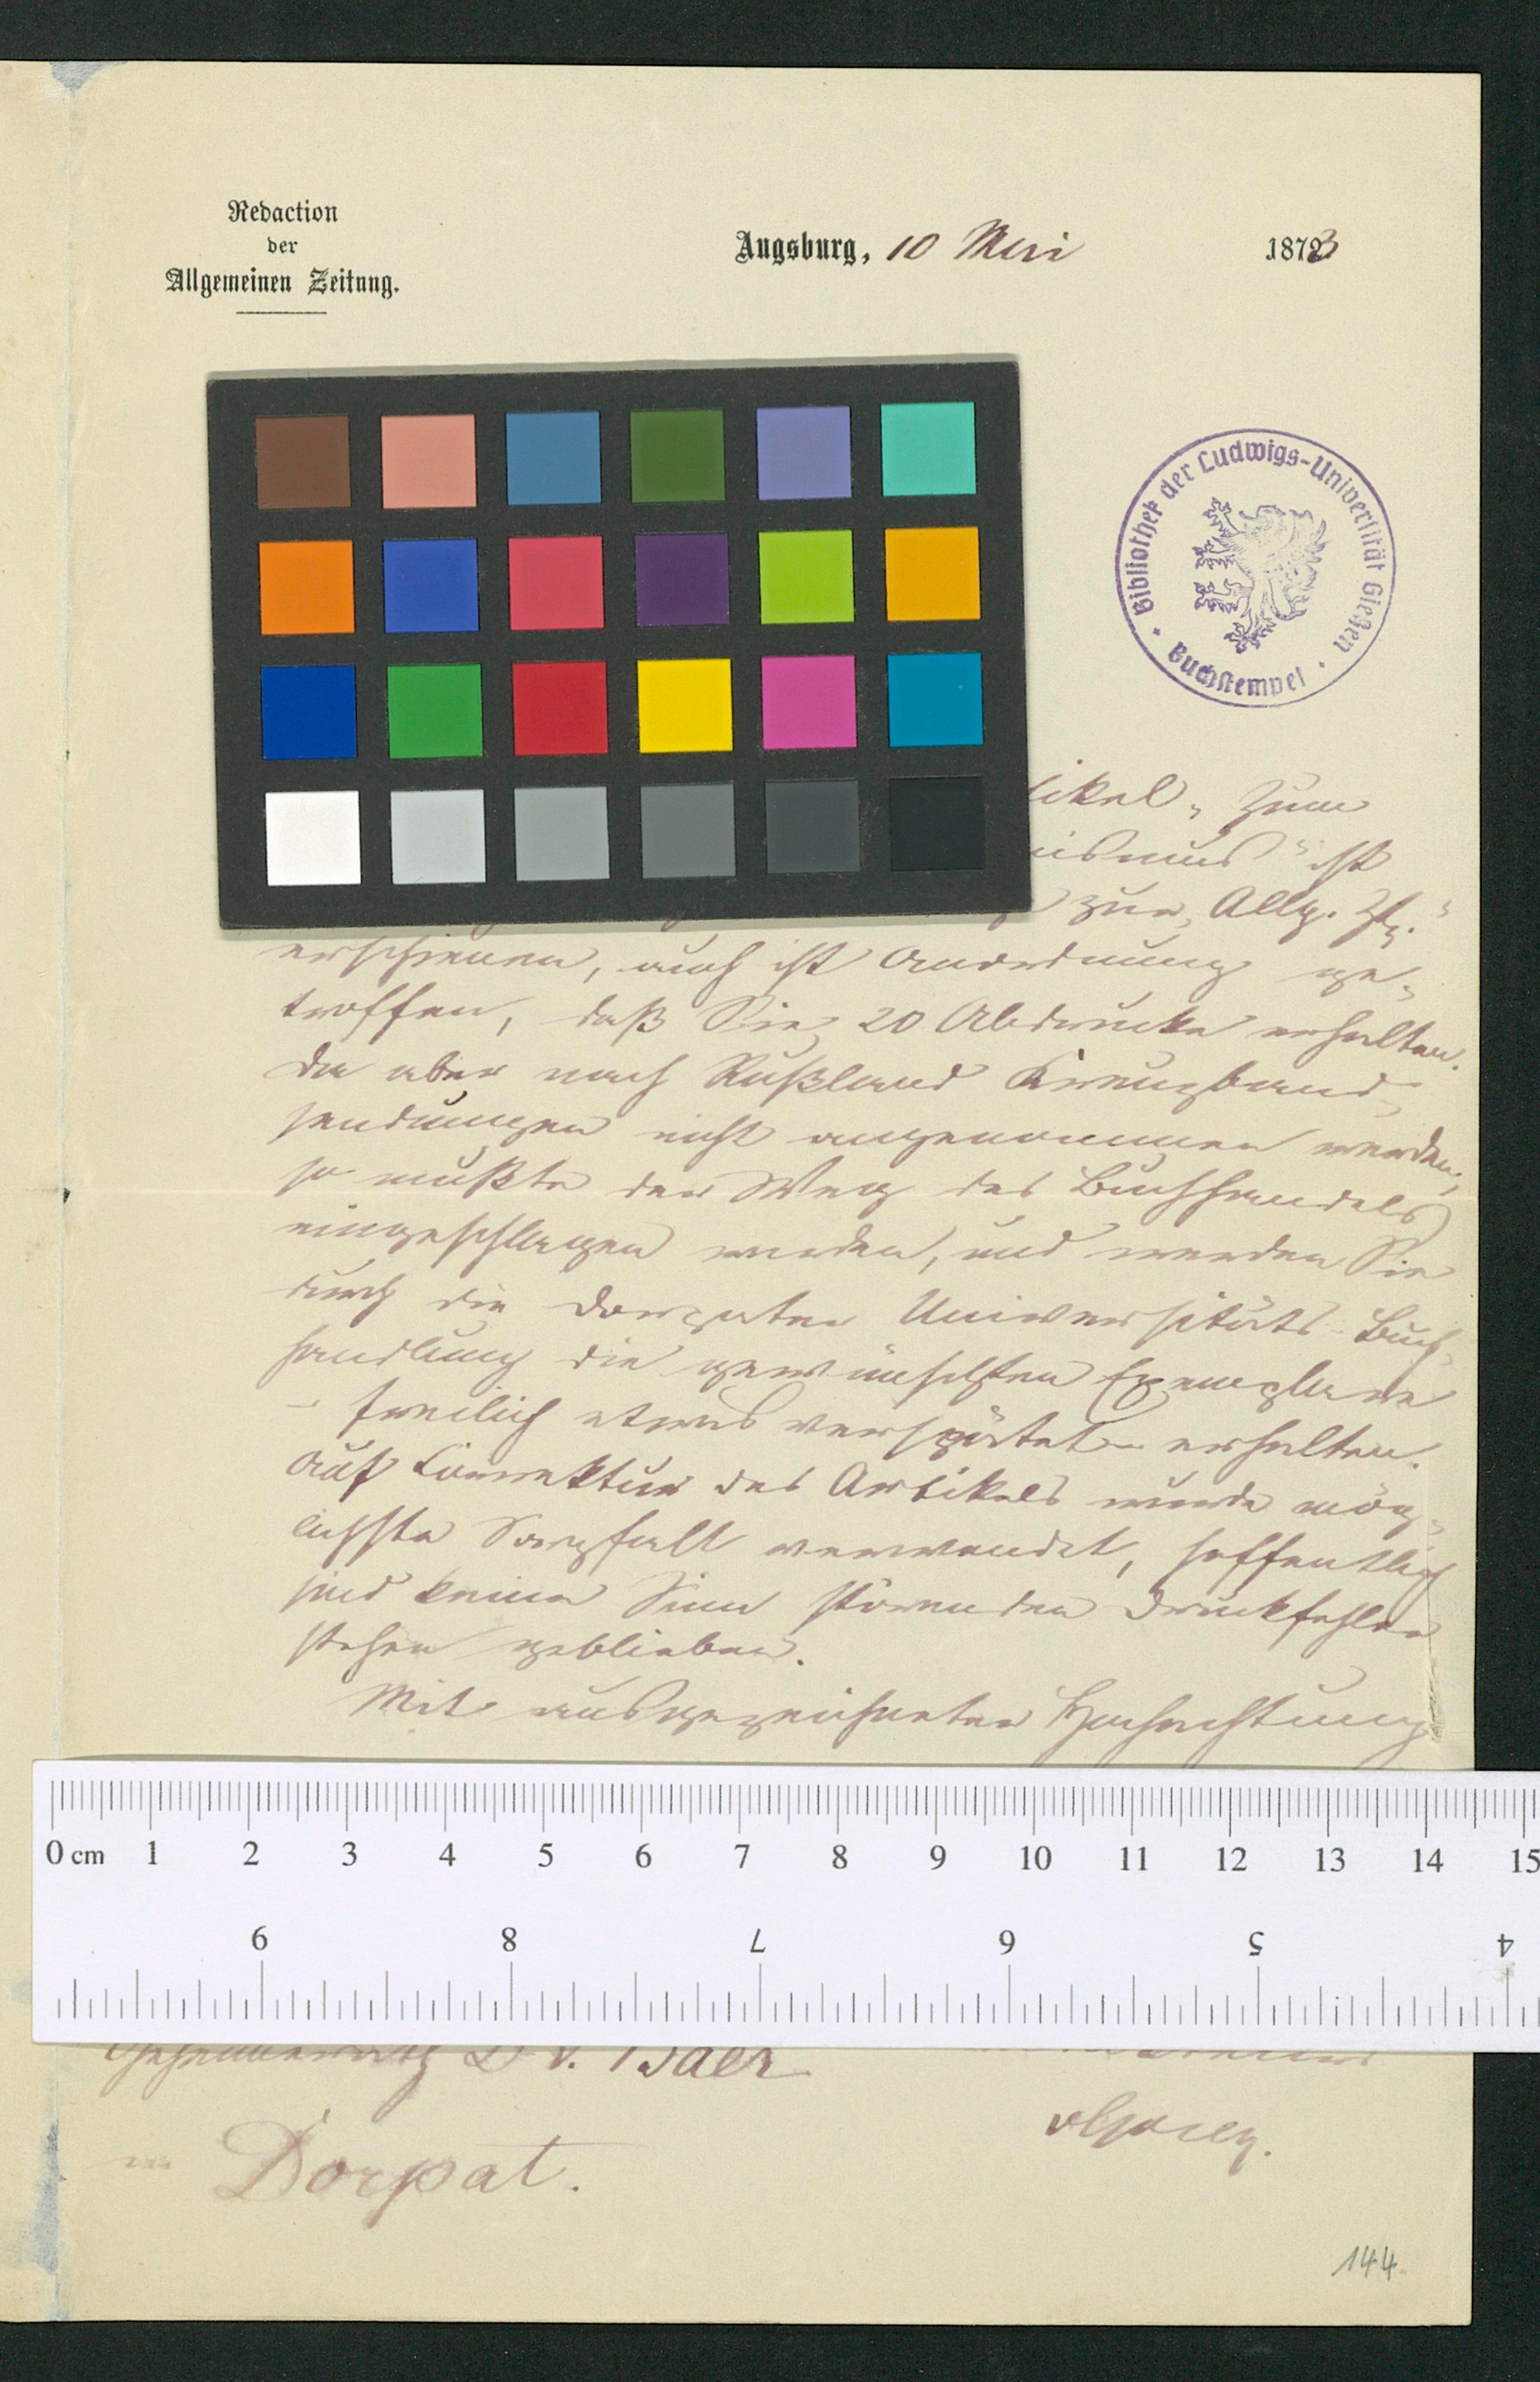 Redaction
der
Allgemeinen Zeitung.
Augsburg, 10 Mai 1873
Bibliothek der Ludwigs-Universität Gießen
Buchstempel
tikel „Zum
ismus“ ist
zur „Allg. Ztg.“
erschienen, auch ist Anordnung ge-
troffen, daß Sie 20 Abdrucke erhalten.
Da aber nach Rußland Kreuzband-
sendungen nicht angenommen werden,
so mußte der Weg des Buchhandels
eingeschlagen werden, und werden Sie
durch die Dorpater Universitäts-Buch-
handlung die gewünschten Exemplare
– freilich etwas verspätet – erhalten.
Auf Correktur des Artikels wurde mög-
lichste Sorgfalt verwendet, hoffentlich
sind keine Sinn störenden Druckfehler
stehen geblieben.
Mit ausgezeichneter Hochachtung
0 cm 1 2 3 4 5 6 7 8 9 10 11 12 13 14 15
9 8 7 6 5 4
Geheimerath D v. Baer
Dorpat.
144